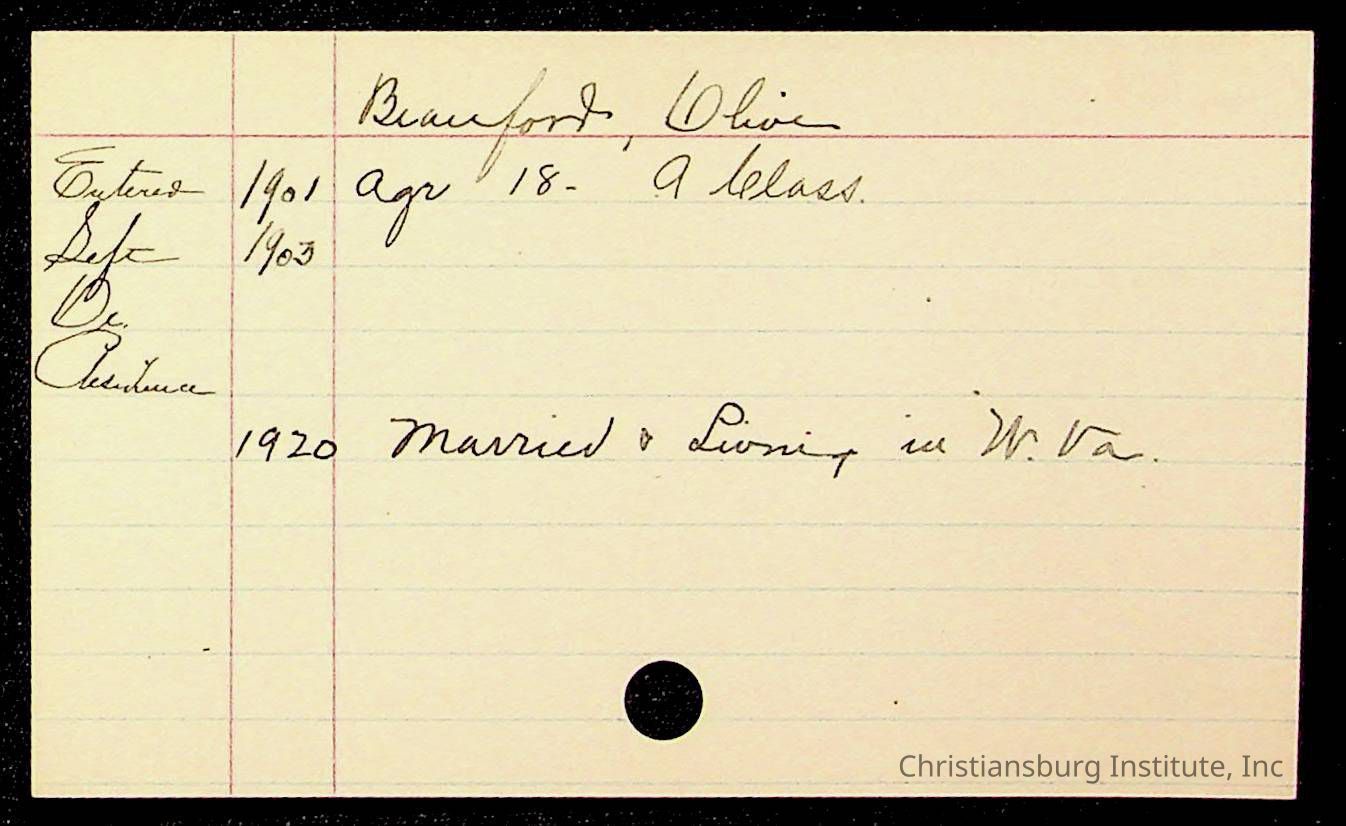 Beauford, Oliver
Entered 1901 Agr 18- A Class.
Left 1903
Oc.
Residence
1920 Married & Living in W. Va.
Christiansburg Institute, Inc